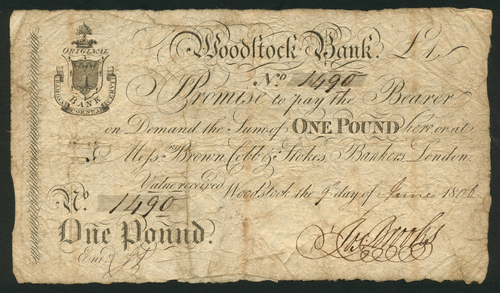 Woodstock Bank. £1,
ORIGINAL
BANK
No. 1490
I Promise to pay the Bearer
on Demand the Sum of ONE POUND here or at
Messrs. Brown Cobb & Stokes, Bankers, London.
Value received Woodstock the 9th day of June 1806
No. 1490
One Pound.
Entd.